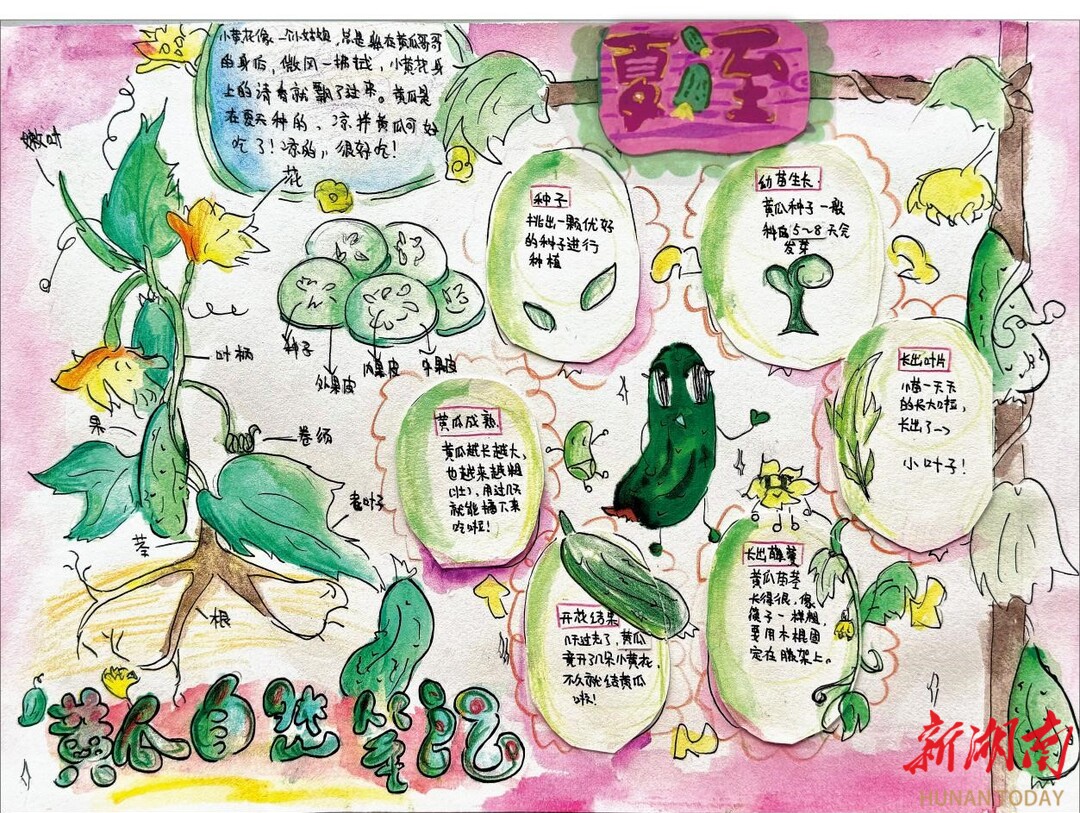 小黄花像一个小姑娘,总是躲在黄瓜哥哥
的身后,微风一拂过,小黄花身
上的清香就飘了过来。黄瓜是
在夏天种的,凉拌黄瓜可好
吃了!凉的,很好吃!
夏至
嫩叶
花
叶柄
果
卷须
老叶子
茎
根
种子
外果皮
内果皮
中果皮
种子
挑出一颗优好
的种子进行
种植
幼苗生长
黄瓜种子一般
种后5~8天会
发芽
长出叶片
小苗一天天
的长大啦,
长出了→
小叶子!
长出藤蔓
黄瓜苗茎
长得很,像
筷子一样粗,
要用木棍固
定在藤架上。
开花结果
几天过去了,黄瓜
竟开了几朵小黄花,
不久就结黄瓜
啦!
黄瓜成熟
黄瓜越长越大,
也越来越粗
(壮),再过几天
就能摘下来
吃啦!
黄瓜自然笔记
新湖南
HUNAN TODAY